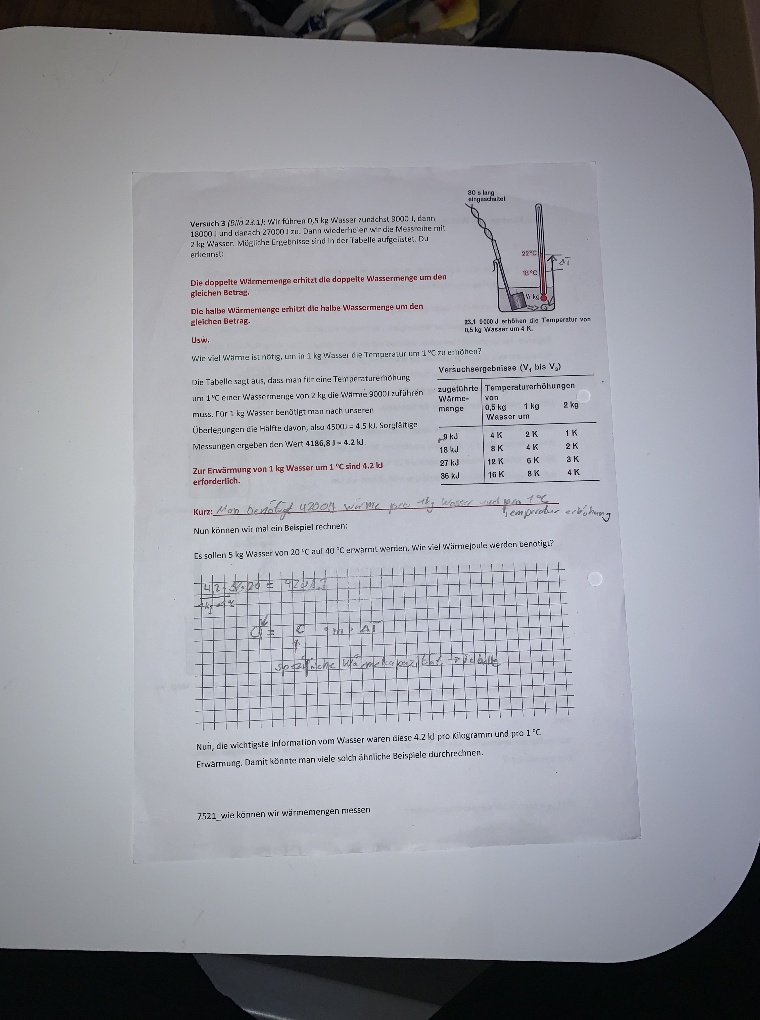 Versuch 3 (Bild 23.1): Wir führen 0,5 kg Wasser zunächst 9000 J, dann
18000 J und danach 27000 J zu. Dann wiederholen wir die Messreihe mit
2 kg Wasser. Mögliche Ergebnisse sind in der Tabelle aufgelistet. Du
erkennst:
Die doppelte Wärmemenge erhitzt die doppelte Wassermenge um den
gleichen Betrag.
Die halbe Wärmemenge erhitzt die halbe Wassermenge um den
gleichen Betrag.
Usw.
80 s lang
eingeschaltet
22°C
18°C
ΔT
½ kg
23.1 9000 J erhöhen die Temperatur von
0,5 kg Wasser um 4 K.
Wie viel Wärme ist nötig, um in 1 kg Wasser die Temperatur um 1 °C zu erhöhen?
Die Tabelle sagt aus, dass man für eine Temperaturerhöhung
um 1 °C einer Wassermenge von 2 kg die Wärme 9000J zuführen
muss. Für 1 kg Wasser benötigt man nach unseren
Überlegungen die Hälfte davon, also 4500J = 4.5 kJ. Sorgfältige
Messungen ergeben den Wert 4186,8 J = 4.2 kJ
Zur Erwärmung von 1 kg Wasser um 1 °C sind 4.2 kJ
erforderlich.
Versuchsergebnisse (V₁ bis V₃)
zugeführte Wärme-menge Temperaturerhöhungen von
0,5 kg 1 kg 2 kg
Wasser um
9 kJ 4 K 2 K 1 K
18 kJ 8 K 4 K 2 K
27 kJ 12 K 6 K 3 K
36 kJ 16 K 8 K 4 K
Kurz: Man benötigt 4200J wärme pro 1kg Wasser und pro 1 °C
Temperatur erhöhung
Nun können wir mal ein Beispiel rechnen:
Es sollen 5 kg Wasser von 20 °C auf 40 °C erwärmt werden. Wie viel Wärmejoule werden benötigt?
4,2 · 5 · 20 =
Q = c · m · ΔT
spezifische Wärmekapazität
Nun, die wichtigste Information vom Wasser waren diese 4.2 kJ pro Kilogramm und pro 1 °C
Erwärmung. Damit könnte man viele solch ähnliche Beispiele durchrechnen.
7521_wie können wir wärmemengen messen